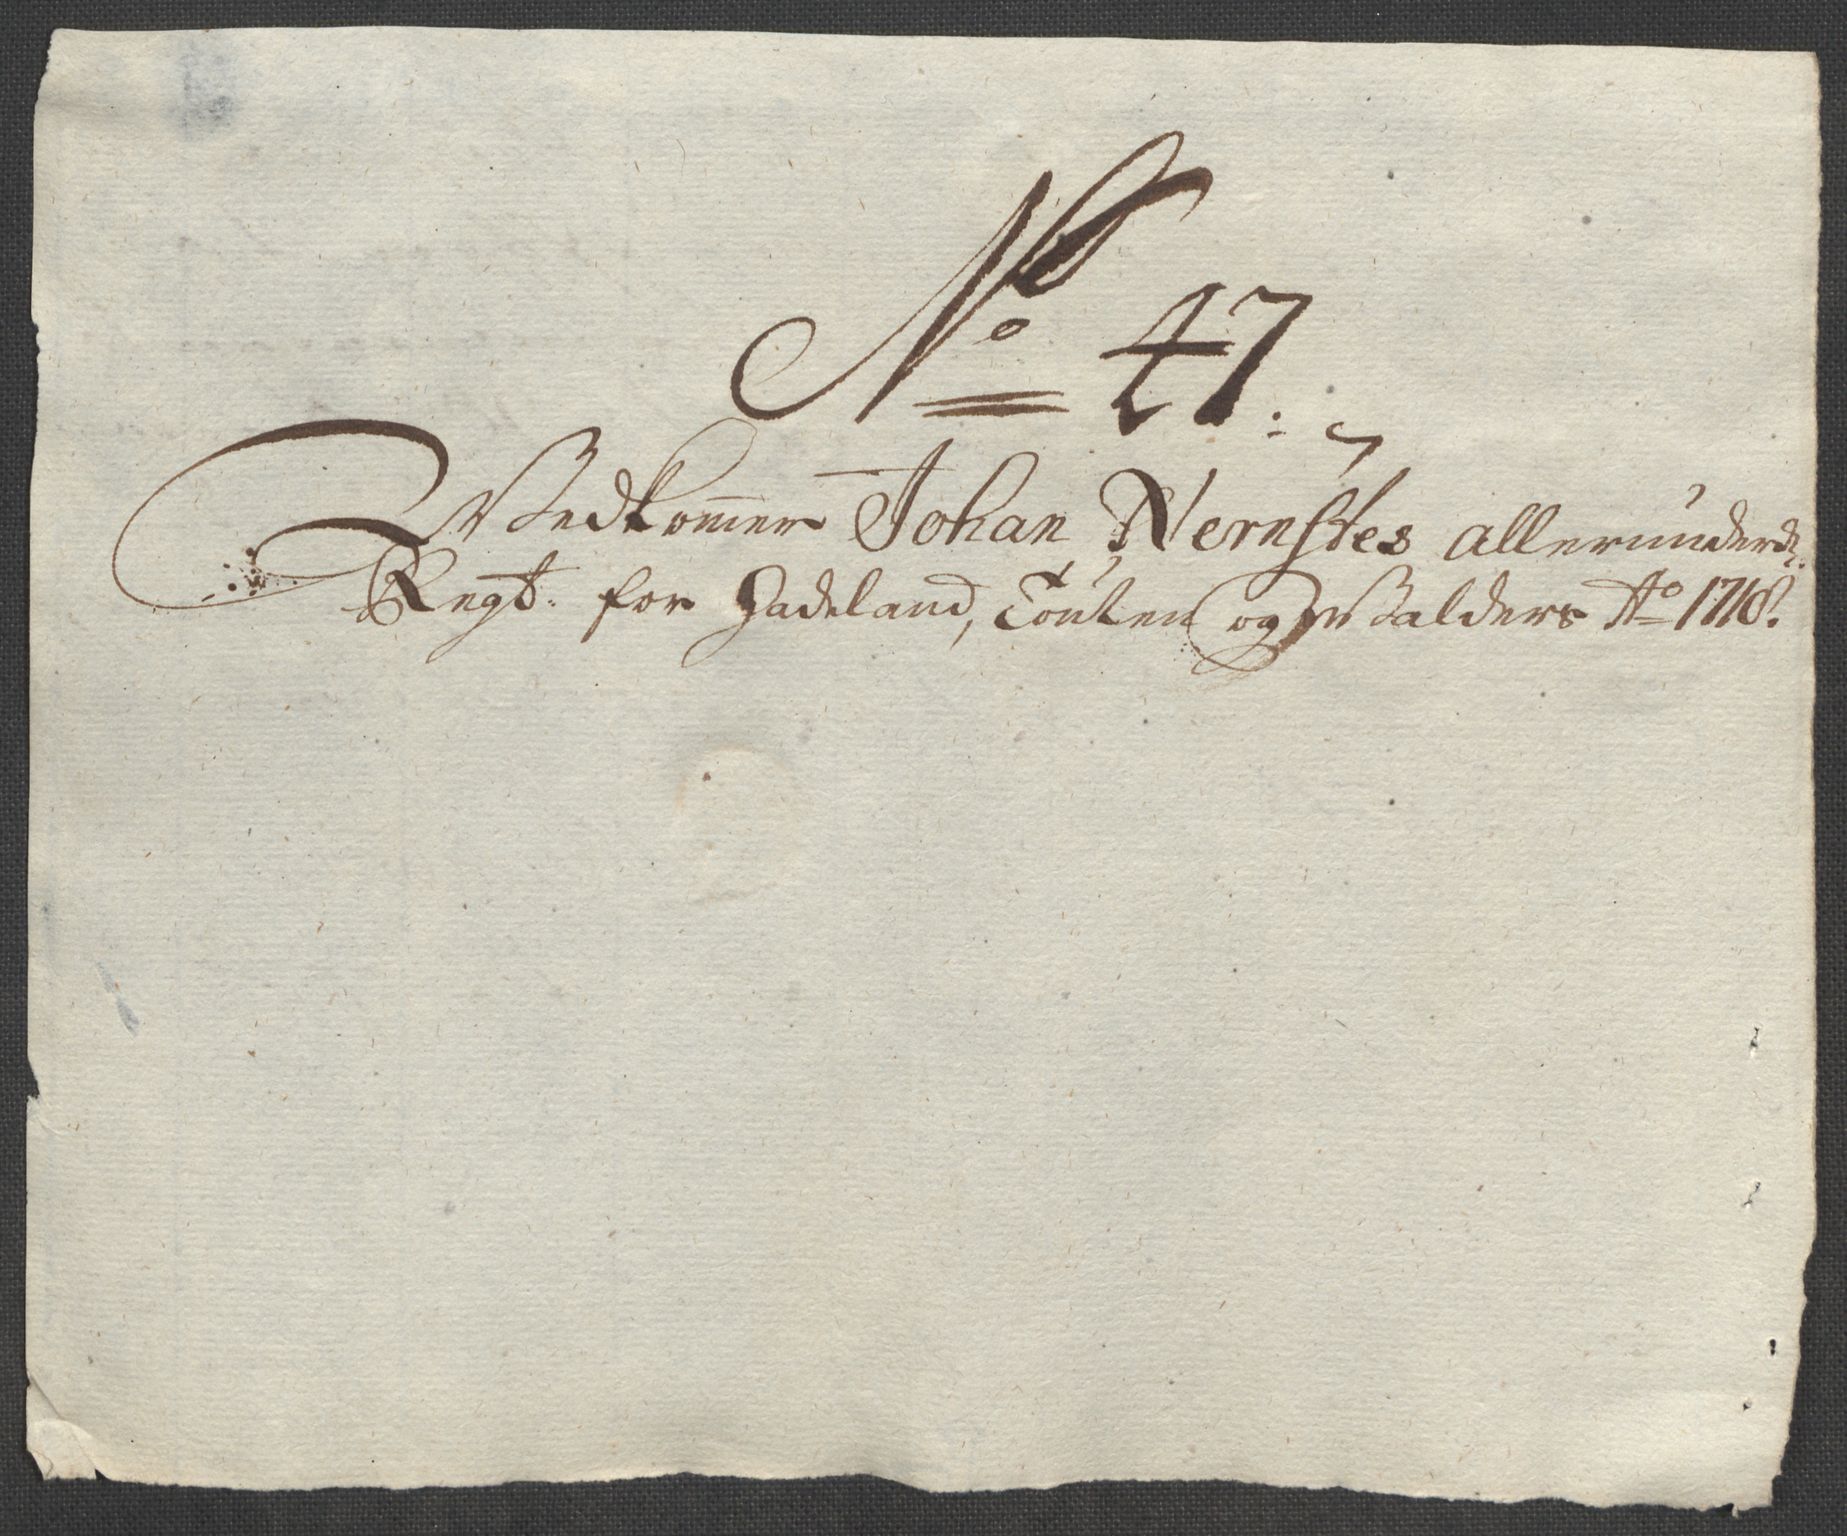 No 47.
Vedkommer Johan Nernstes allerunderd:
Regt: for Hadeland, Touten og Walders Ao 1716.